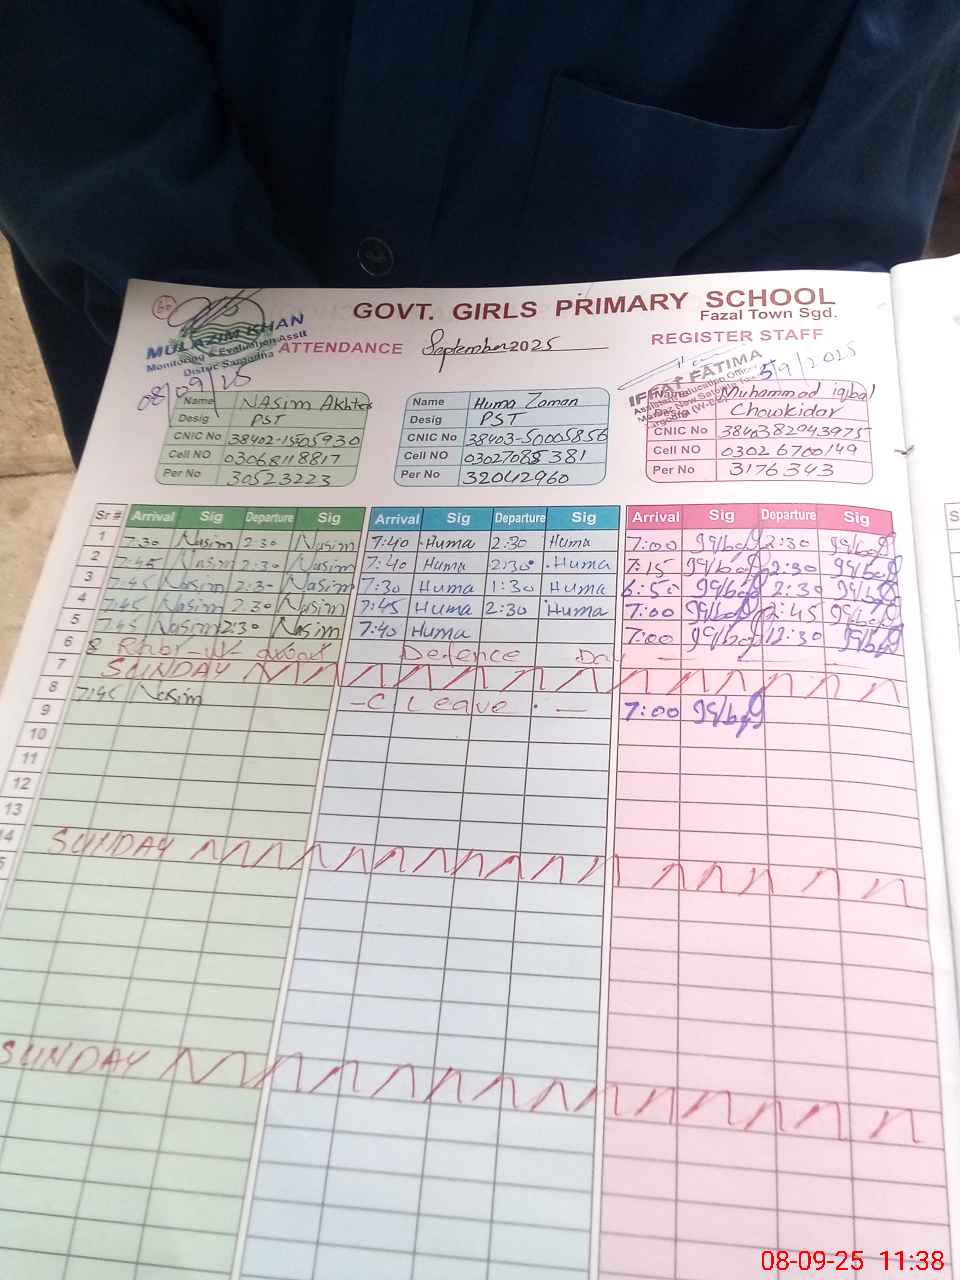 GOVT. GIRLS PRIMARY SCHOOL
Fazal Town Sgd.
MULAZIM KHAN
Monitoring & Evaluation Assit
District Sargodha
08/09/25
ATTENDANCE September 2025 REGISTER STAFF
IFFAT FATIMA
5/9/2025
Name NASim Akhter
Desig PST
CNIC No 38402-1505930
Cell NO 03068118817
Per No 30523223
Name Huma Zaman
Desig PST
CNIC No 38403-50005856
Cell NO 03027088381
Per No 32042960
Muhammad iqbal
Chowkidar
CNIC No 3840382943975
Cell NO 03026700149
Per No 3176343
Sr # Arrival Sig Departure Sig Arrival Sig Departure Sig Arrival Sig Departure Sig
1 7:30 Nasim 2:30 Nasim 7:40 Huma 2:30 Huma 7:00 2:30
2 7:45 Nasim 2:30 Nasim 7:40 Huma 2:30 Huma 7:15 2:30
3 7:45 Nasim 2:30 Nasim 7:30 Huma 1:30 Huma 6:50 2:30
4 7:45 Nasim 2:30 Nasim 7:45 Huma 2:30 Huma 7:00 2:45
5 7:45 Nasim 2:30 Nasim 7:40 Huma 7:00 12:30
6 Defence Day
7 SUNDAY
8 7:45 Nasim -C Leave - 7:00
9
10
11
12
13
14 SUNDAY
SUNDAY
08-09-25 11:38